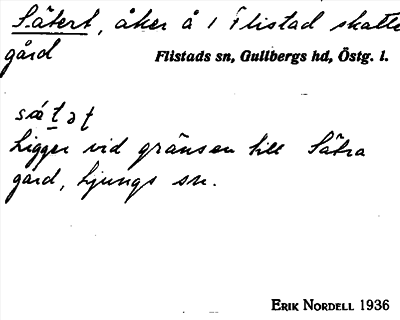 Sätert, åker å 1 Flistad skatte
gård
Flistads sn, Gullbergs hd, Östg. l.
sǽtət
Ligger vid gränsen till Sätra
gård, Ljungs sn.
ERIK NORDELL 1936